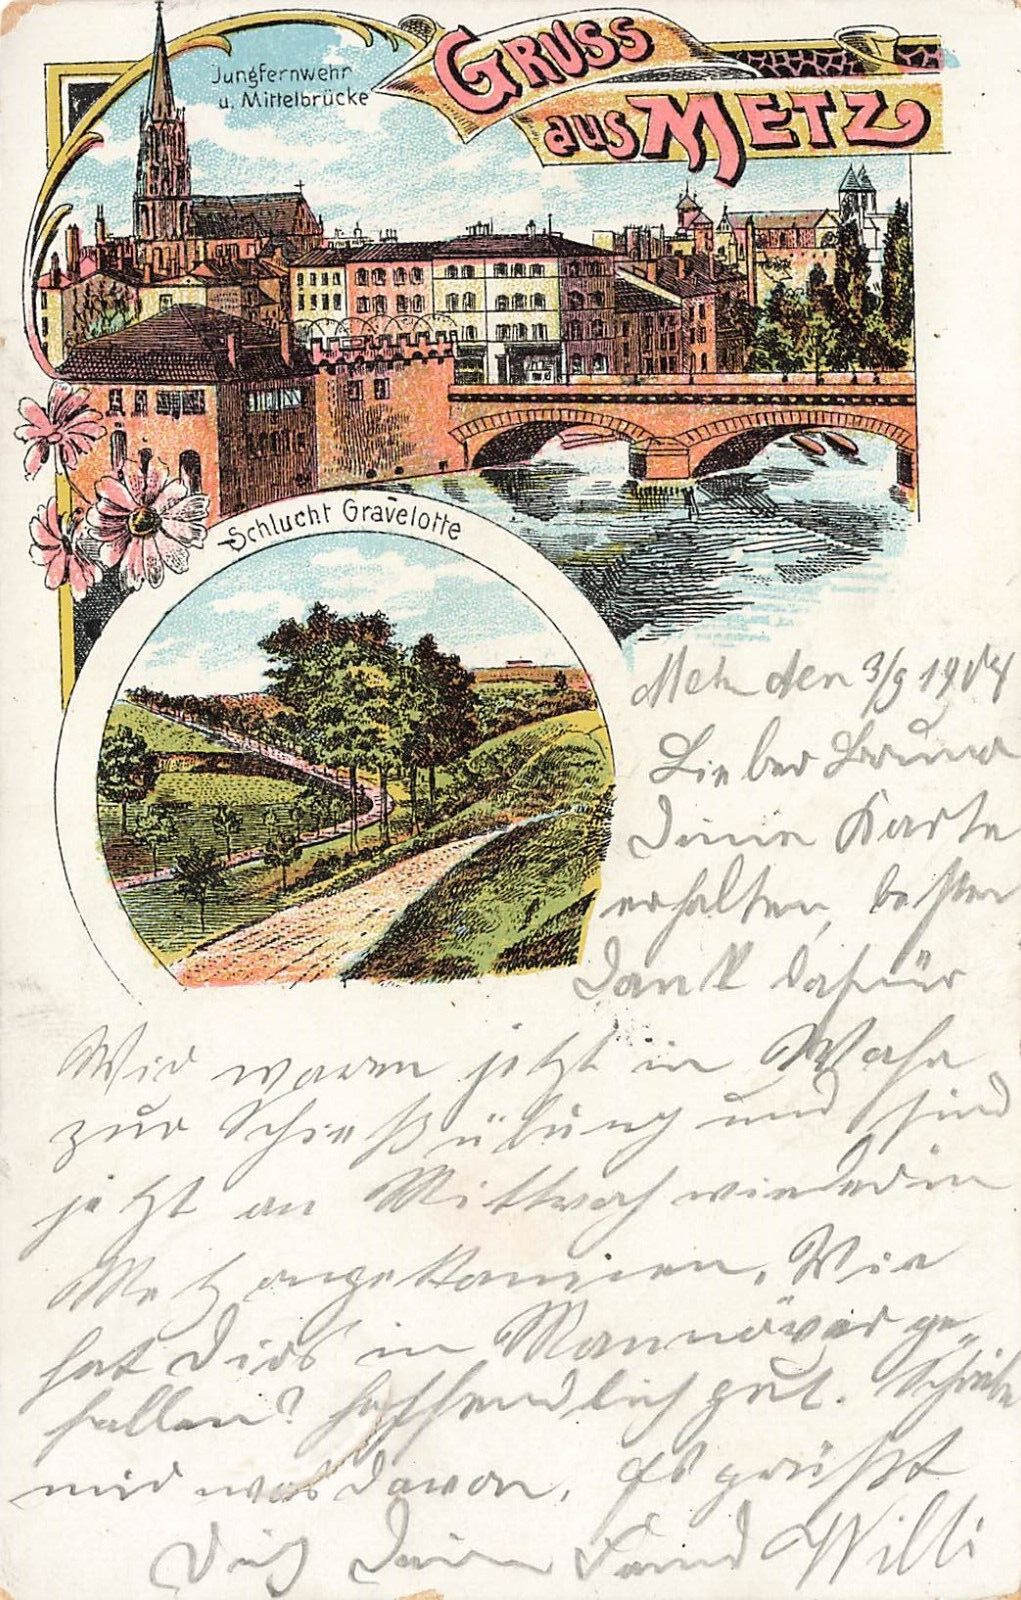 Jungfernwehr
u. Mittelbrücke
GRUSS
aus METZ
Schlucht Gravelotte
Metz den 3/9 1904
Lieber Bruno
Deine Karte
erhalten, besten
Dank dafür
Wir waren jetzt in Wahn
zur Schießübung und sind
jetzt am Mittwoch wieder in
Metz angekommen. Wie
hat Dirs in Mannöver ge-
fallen? hoffendlich gut. Schreibe
mir was davon. Es grüßt
Dich Dein Freund Willi